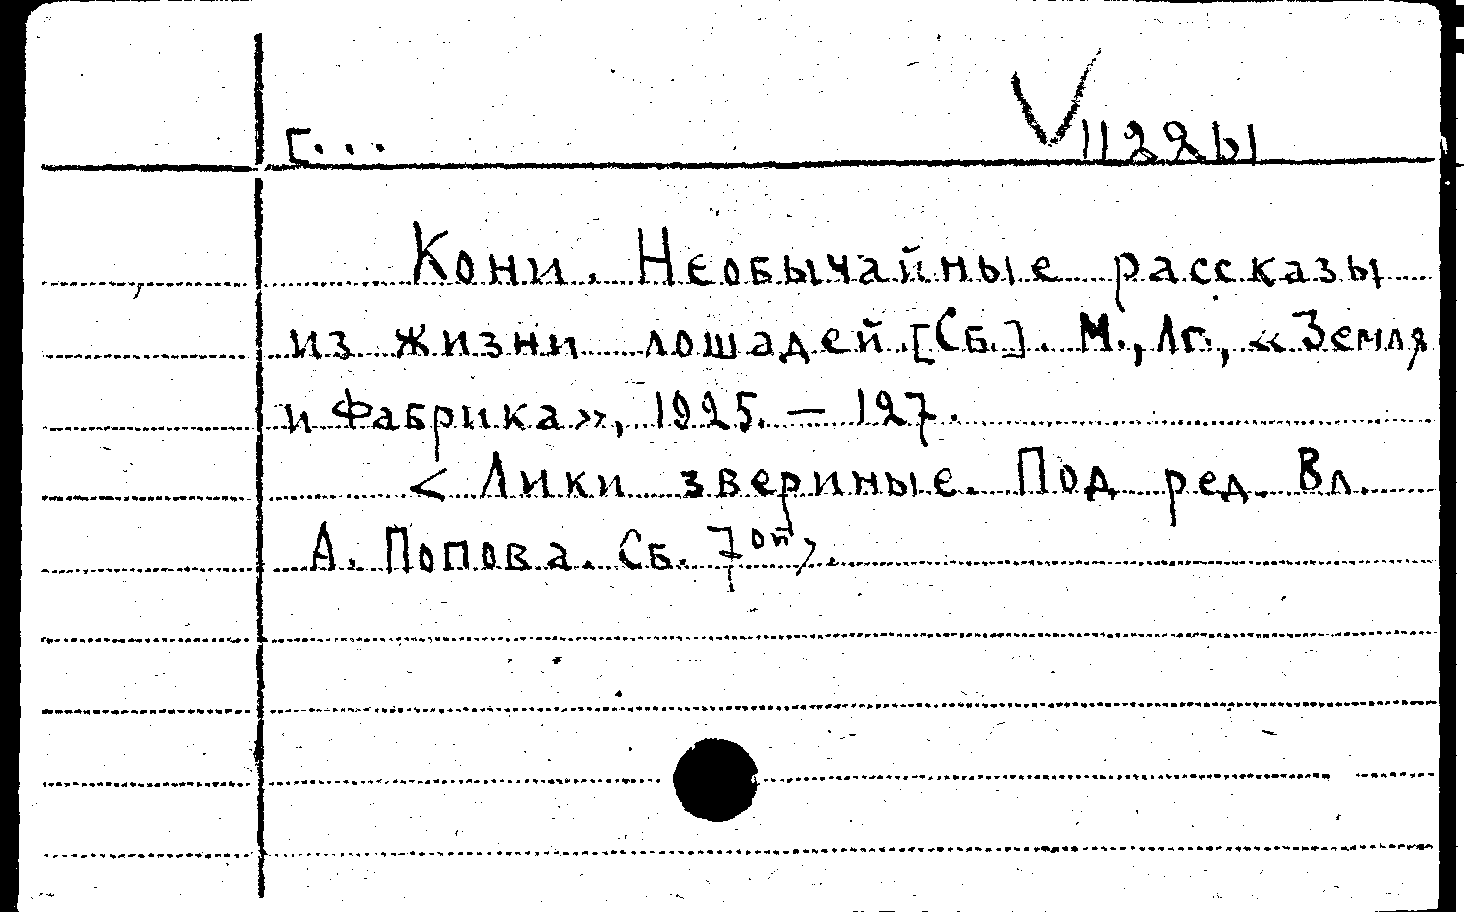 [...
V 1122ы
Кони. Необычайные рассказы
из жизни лошадей [Сб.]. М., Лг., «Земля
и Фабрика», 1925. — 127.
< Лики звериные. Под ред. Вл.
А. Попова. Сб. 7ой>.